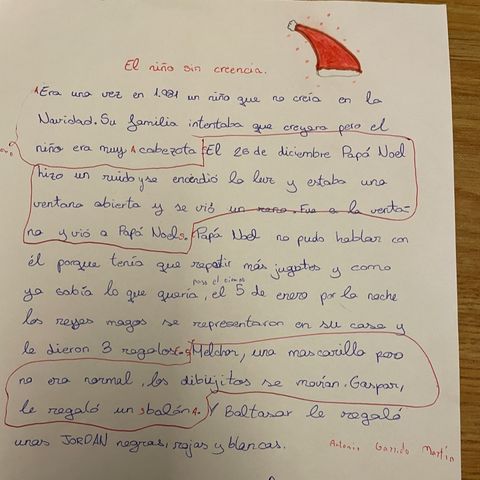 El niño sin creencia.
Era una vez en 1.981 un niño que no creía en la
Navidad. Su familia intentaba que creyera pero el
niño era muy cabezota. El 26 de diciembre Papá Noel
hizo un ruido y se encendió la luz y estaba una
ventana abierta y se vió un rano. Fue a la venta-
na y vió a Papá Noel. Papá Noel no pudo hablar con
él porque tenía que repatir más jugetes y como
ya sabía lo que quería, el 5 de enero por la noche
los reyes magos se representaron en su casa y
le dieron 3 regalos Melchor, una mascarilla pero
no era normal, los dibujitos se movían. Gaspar,
le regaló un balón. Y Baltasar le regaló
unas JORDAN negras, rojas y blancas.
Antonio Garrido Martín